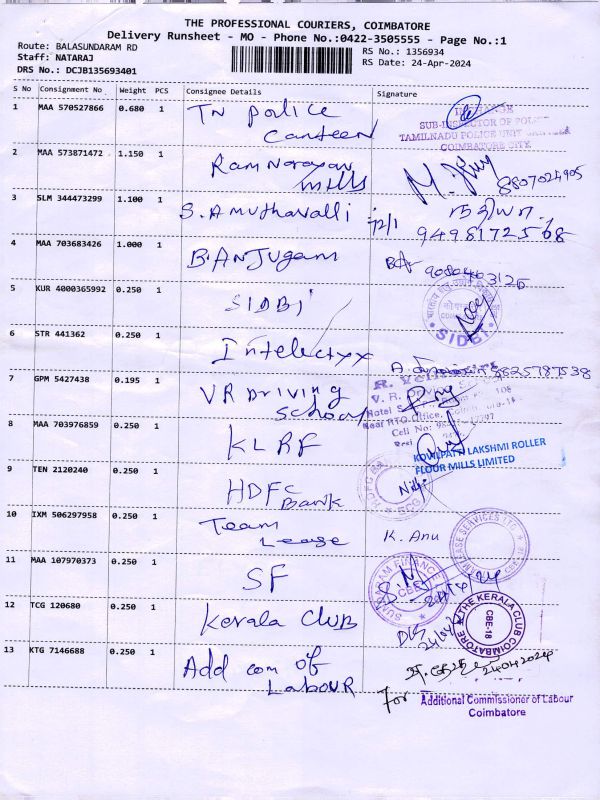 THE PROFESSIONAL COURIERS, COIMBATORE
Delivery Runsheet - MO - Phone No.:0422-3505555 - Page No.:1
Route: BALASUNDARAM RD
Staff: NATARAJ
DRS No.: DCJB135693401
RS No.: 1356934
RS Date: 24-Apr-2024
S No Consignment No Weight PCS Consignee Details Signature
1 MAA 570527866 0.680 1 TN police
canteen
SUB-INSPECTOR OF POLICE
TAMILNADU POLICE UNIT CANTEEN
COIMBATORE CITY
2 MAA 573871472 1.150 1 Ram Narayan
mills
8807024905
3 SLM 344473299 1.100 1 S. Amuthavalli
12/1
9498172568
4 MAA 703683426 1.000 1 B. ANJugam
9080463126
5 KUR 4000365992 0.250 1 SIDBI
SIDBI
6 STR 441362 0.250 1 Intelectyx
8825787538
7 GPM 5427438 0.195 1 VR Driving
School
8 MAA 703976859 0.250 1 KLRF
KOVILPATTI LAKSHMI ROLLER
FLOUR MILLS LIMITED
9 TEN 2120240 0.250 1 HDFC
Bank
10 IXM 506297958 0.250 1 Team
Lease
K. Anu
11 MAA 107970373 0.250 1 SF
SUNDARAM FINANCE
12 TCG 120680 0.250 1 Kerala Club
THE KERALA CLUB COIMBATORE
CBE-18
13 KTG 7146688 0.250 1 Add com of
Labour
24.04.2024
for Additional Commissioner of Labour
Coimbatore